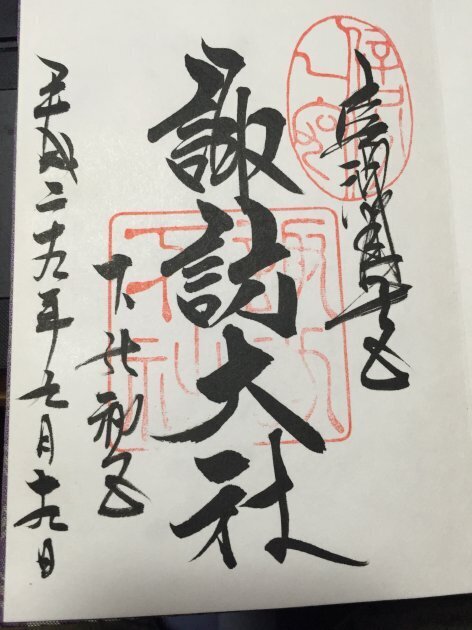 信濃國一之宮
諏訪大社
下社秋宮
平成二十九年七月十九日